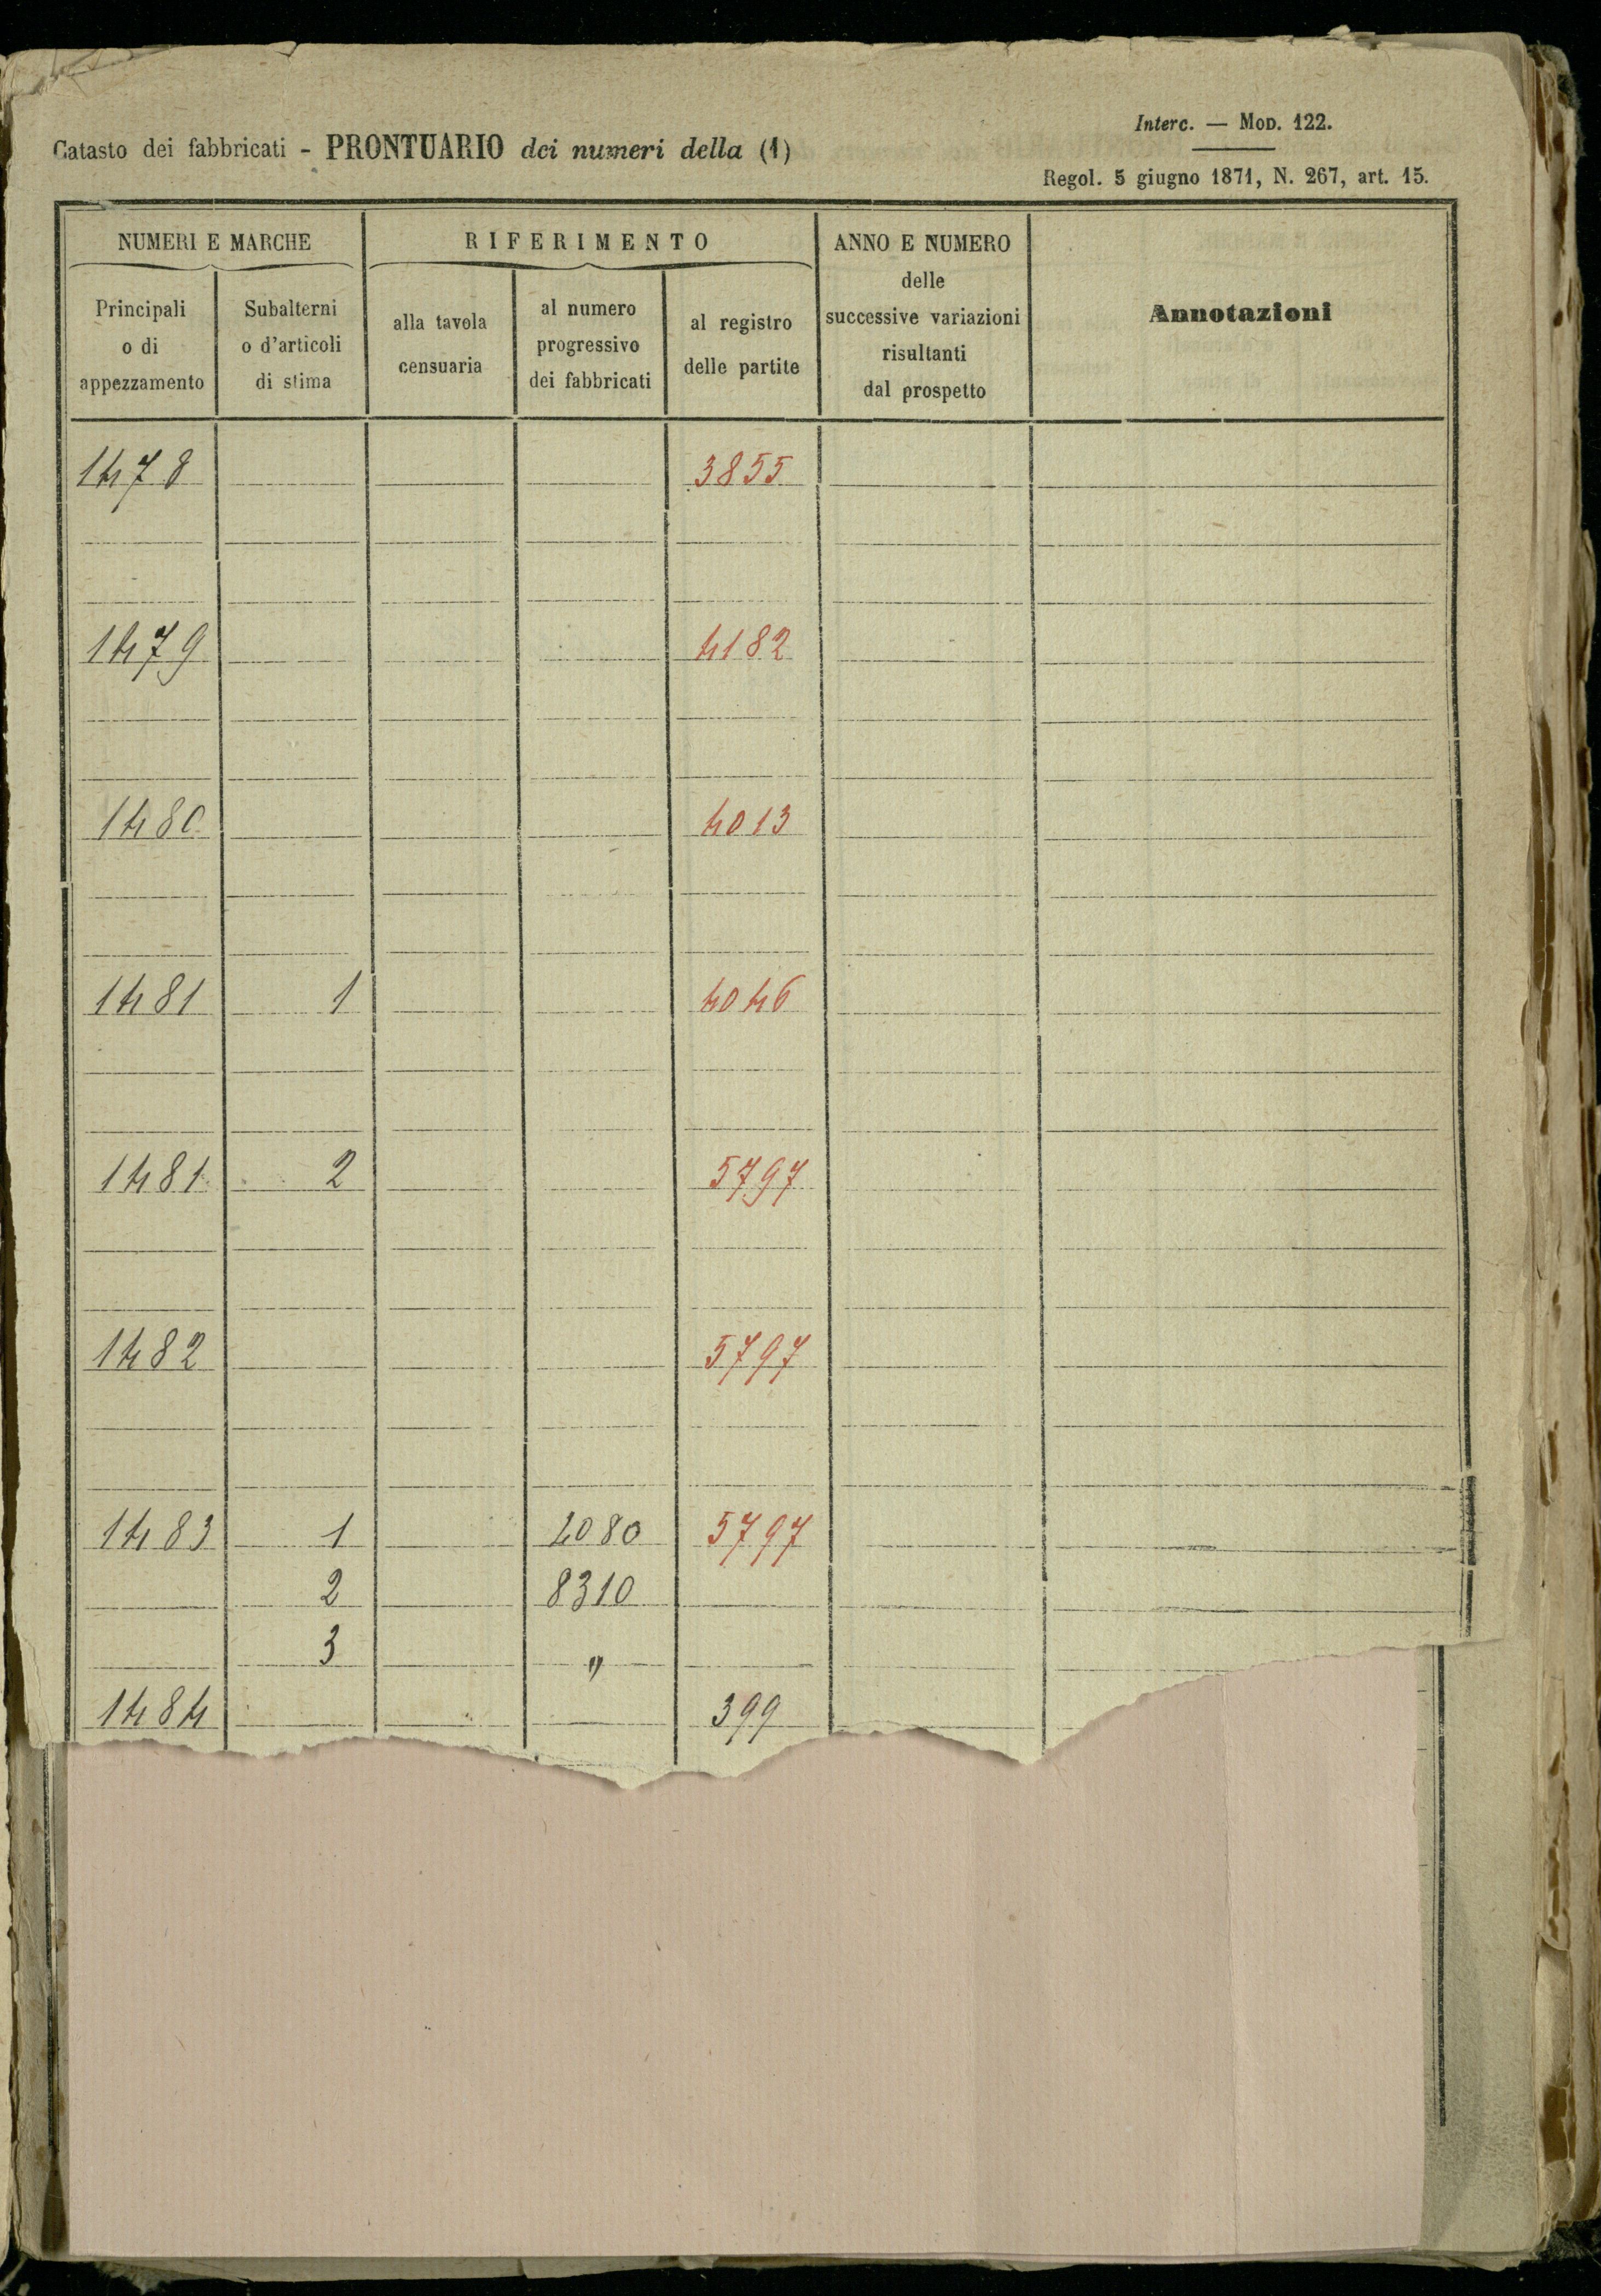 Interc. — Mod. 122.
Catasto dei fabbricati - PRONTUARIO dei numeri della (1)
Regol. 5 giugno 1871, N. 267, art. 15.
NUMERI E MARCHE RIFERIMENTO ANNO E NUMERO delle successive variazioni risultanti dal prospetto Annotazioni
Principali o di appezzamento Subalterni o d'articoli di stima alla tavola censuaria al numero progressivo dei fabbricati al registro delle partite
1478 3855
1479 4182
1480 4013
1481 1 4046
1481 2 5797
1482 5797
1483 1 2080 5797
2 8310
3 "
1484 399